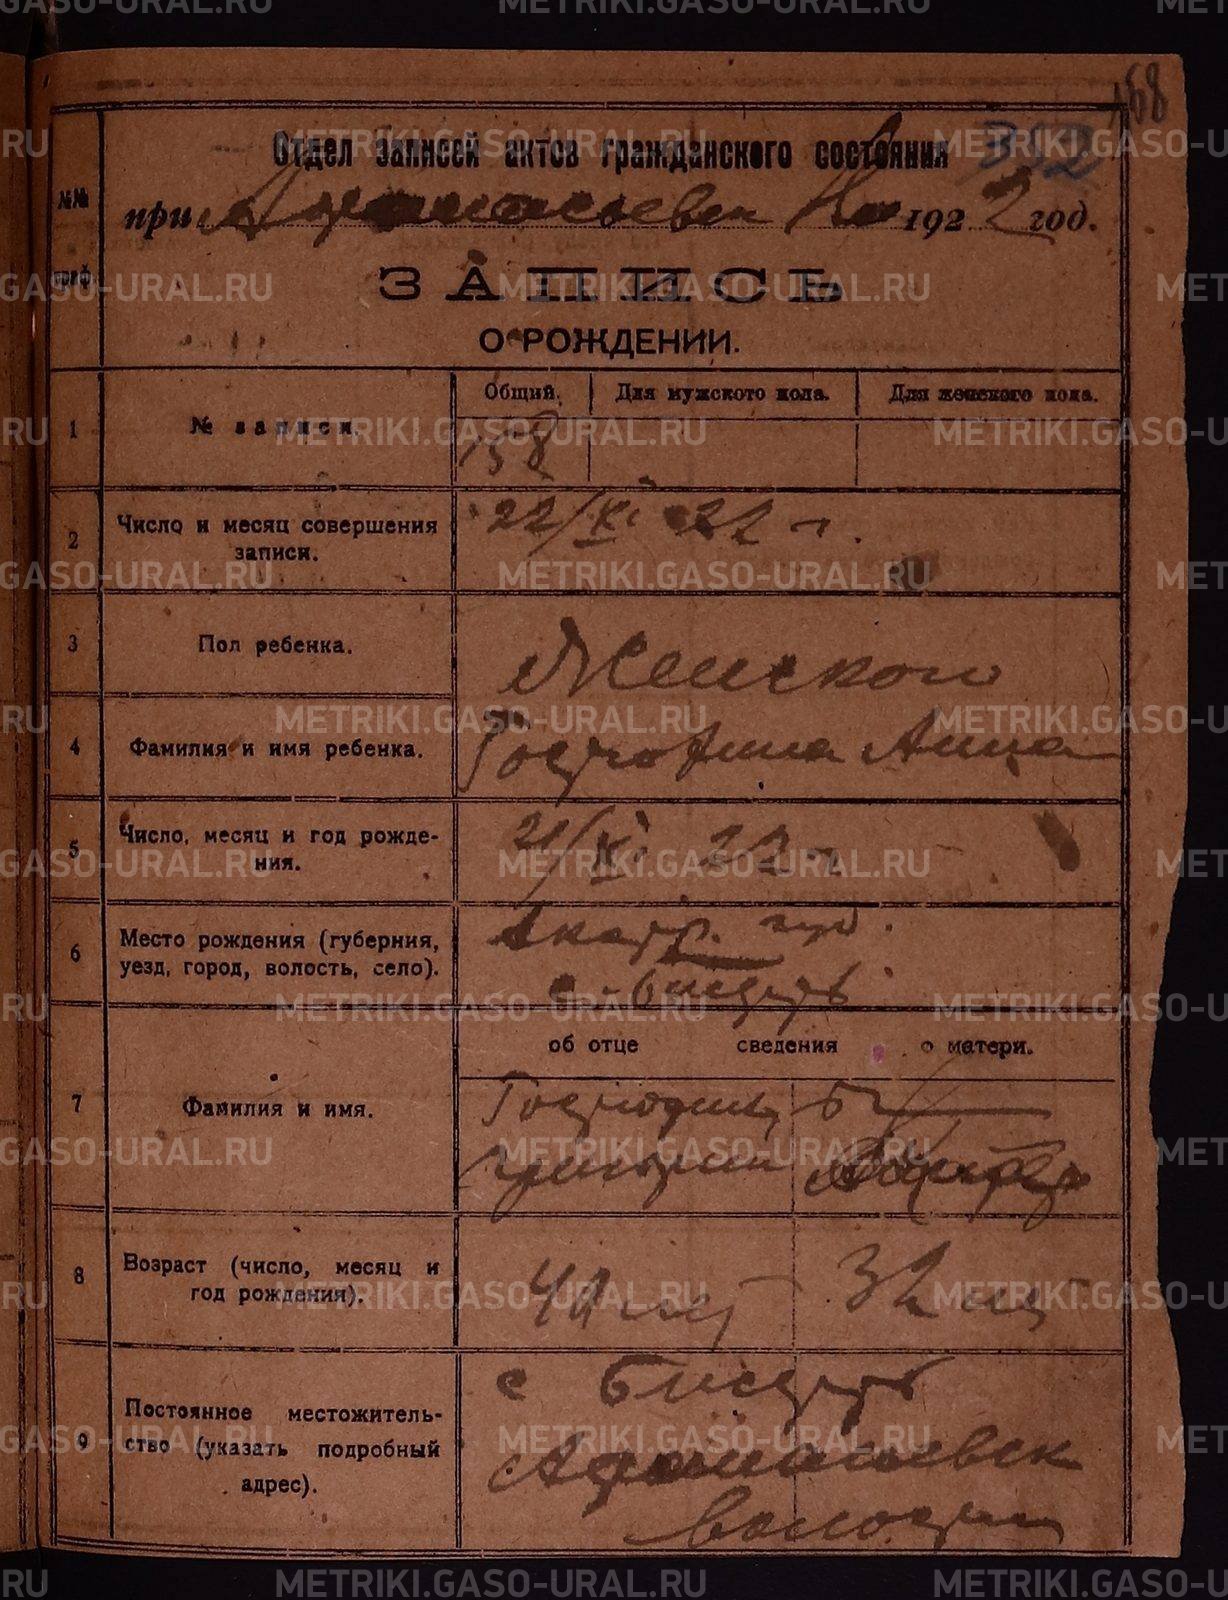 168
352
Отдел записей актов гражданского состояния
№№
при Афанасьевск 1922 год.
граф
ЗАПИСЬ
О РОЖДЕНИИ.
Общий. Для мужского пола. Для женского пола.
1 № записи. 158
2 Число и месяц совершения
записи.
22/XI 22 г.
3 Пол ребенка. Женского
4 Фамилия и имя ребенка. Анна
5 Число, месяц и год рожде-
ния.
21/XI 22 г.
6 Место рождения (губерния,
уезд, город, волость, село).
Екатер. губ.
с. Бисерть
об отце сведения о матери.
7 Фамилия и имя.
Григорий
8 Возраст (число, месяц и
год рождения).
лет 32 лет
9 Постоянное местожитель-
ство (указать подробный
адрес).
с Бисерть
Афанасьевск
волости
METRIKI.GASO-URAL.RU